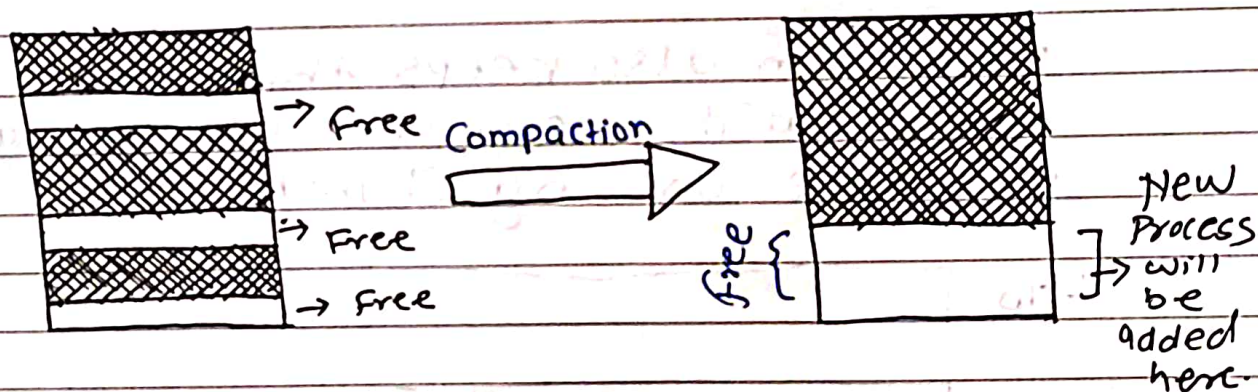 → Free
Compaction
→ Free
→ Free
free
New
Process
→ will
be
added
here.